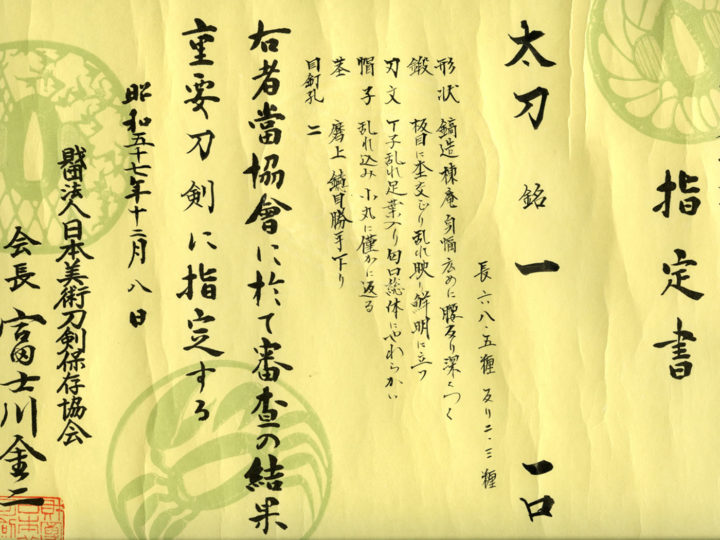 指定書
太刀 銘 一 一口
長 六八・五糎 反り二・三糎
形状 鎬造 棟庵 身幅広めに腰反り深くつく
鍛 板目に杢交じり 乱れ映り鮮明に立つ
刃文 丁子乱れ 足葉入り 匂口総体にやわらかい
帽子 乱れ込み 小丸に僅かに返る
茎 磨上 鑢目勝手下り
目釘孔 二
右者當協會に於て審査の結果
重要刀剣に指定する
昭和五十七年十二月八日
財団法人日本美術刀剣保存協会
会長 富士川金二